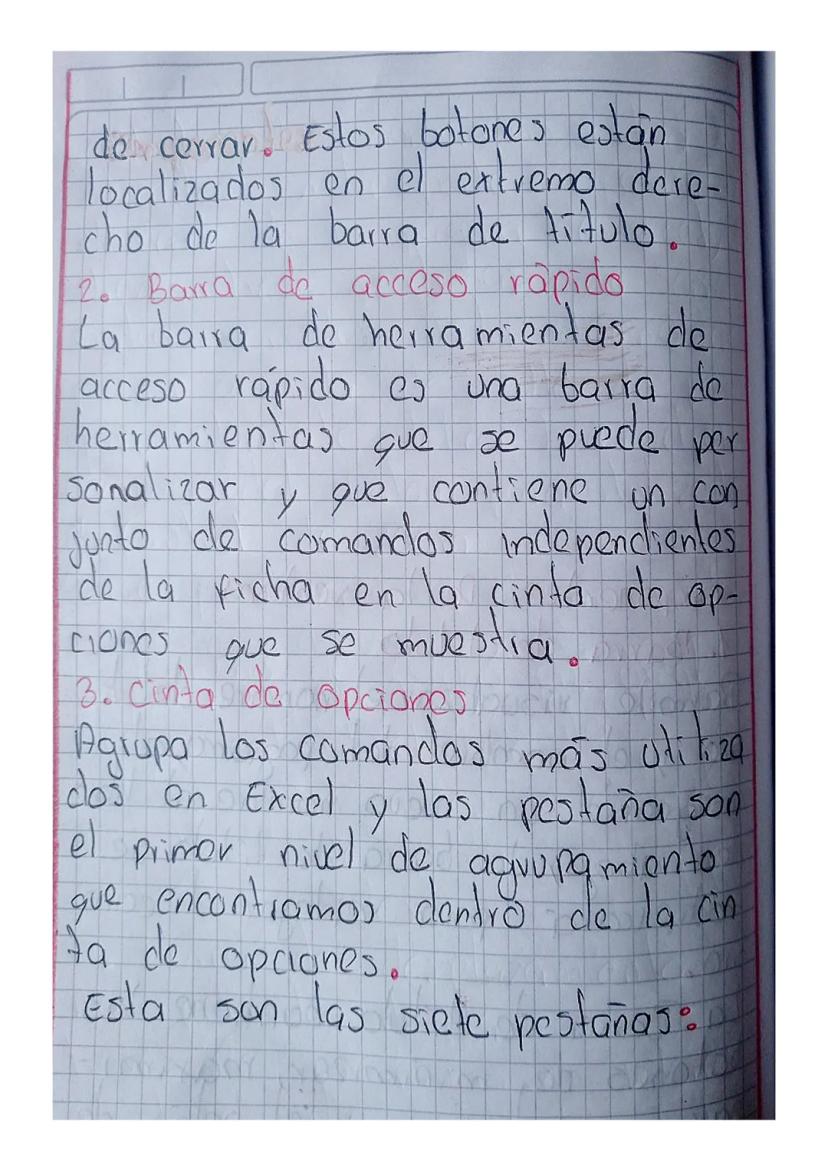 de cerrar. Estos botones están
localizados en el extremo dere-
cho de la barra de título.
2. Barra de acceso rápido
La barra de herramientas de
acceso rápido es una barra de
herramientas que se puede per
sonalizar y que contiene un con
junto de comandos independientes
de la ficha en la cinta de op-
ciones que se muestra.
3. Cinta de opciones
Agrupa los comandos más utiliza
dos en Excel y las pestaña son
el primer nivel de agrupamiento
que encontramos dentro de la cin
ta de opciones.
Esta son las siete pestañas: